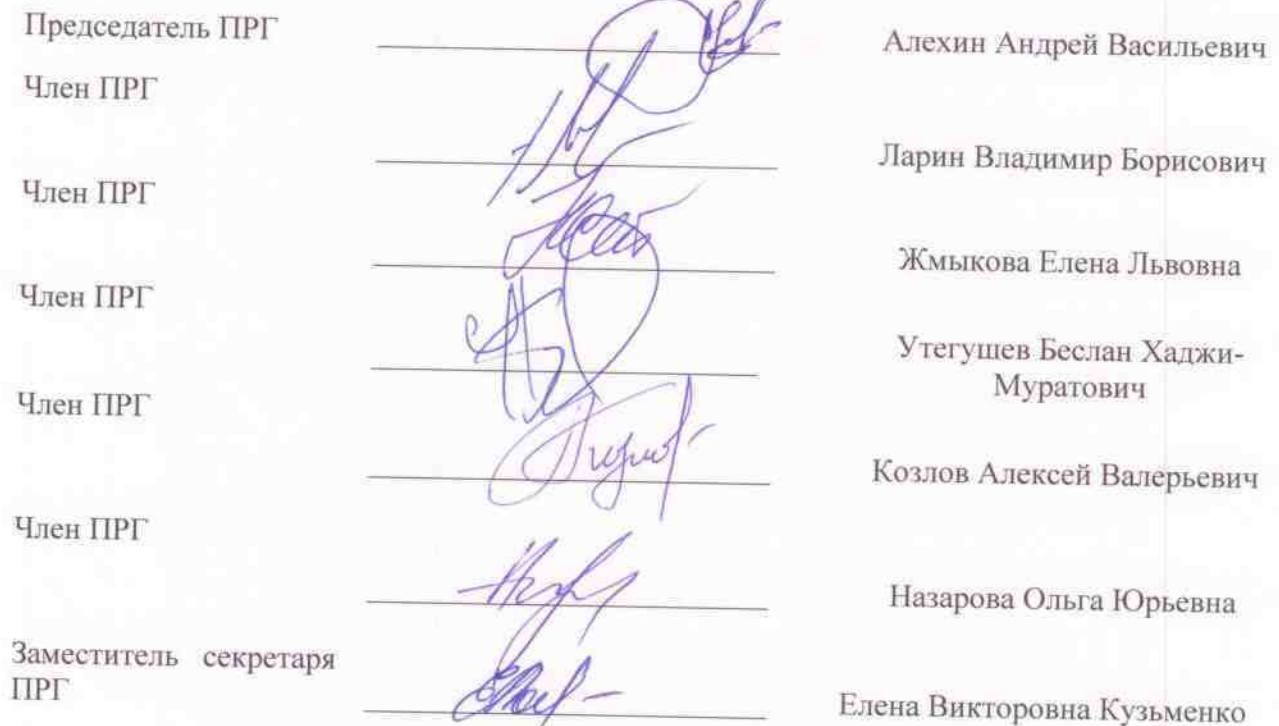 Председатель ПРГ
Алехин Андрей Васильевич
Член ПРГ
Ларин Владимир Борисович
Член ПРГ
Жмыкова Елена Львовна
Член ПРГ
Утегушев Беслан Хаджи-
Муратович
Член ПРГ
Козлов Алексей Валерьевич
Член ПРГ
Назарова Ольга Юрьевна
Заместитель секретаря
ПРГ
Елена Викторовна Кузьменко